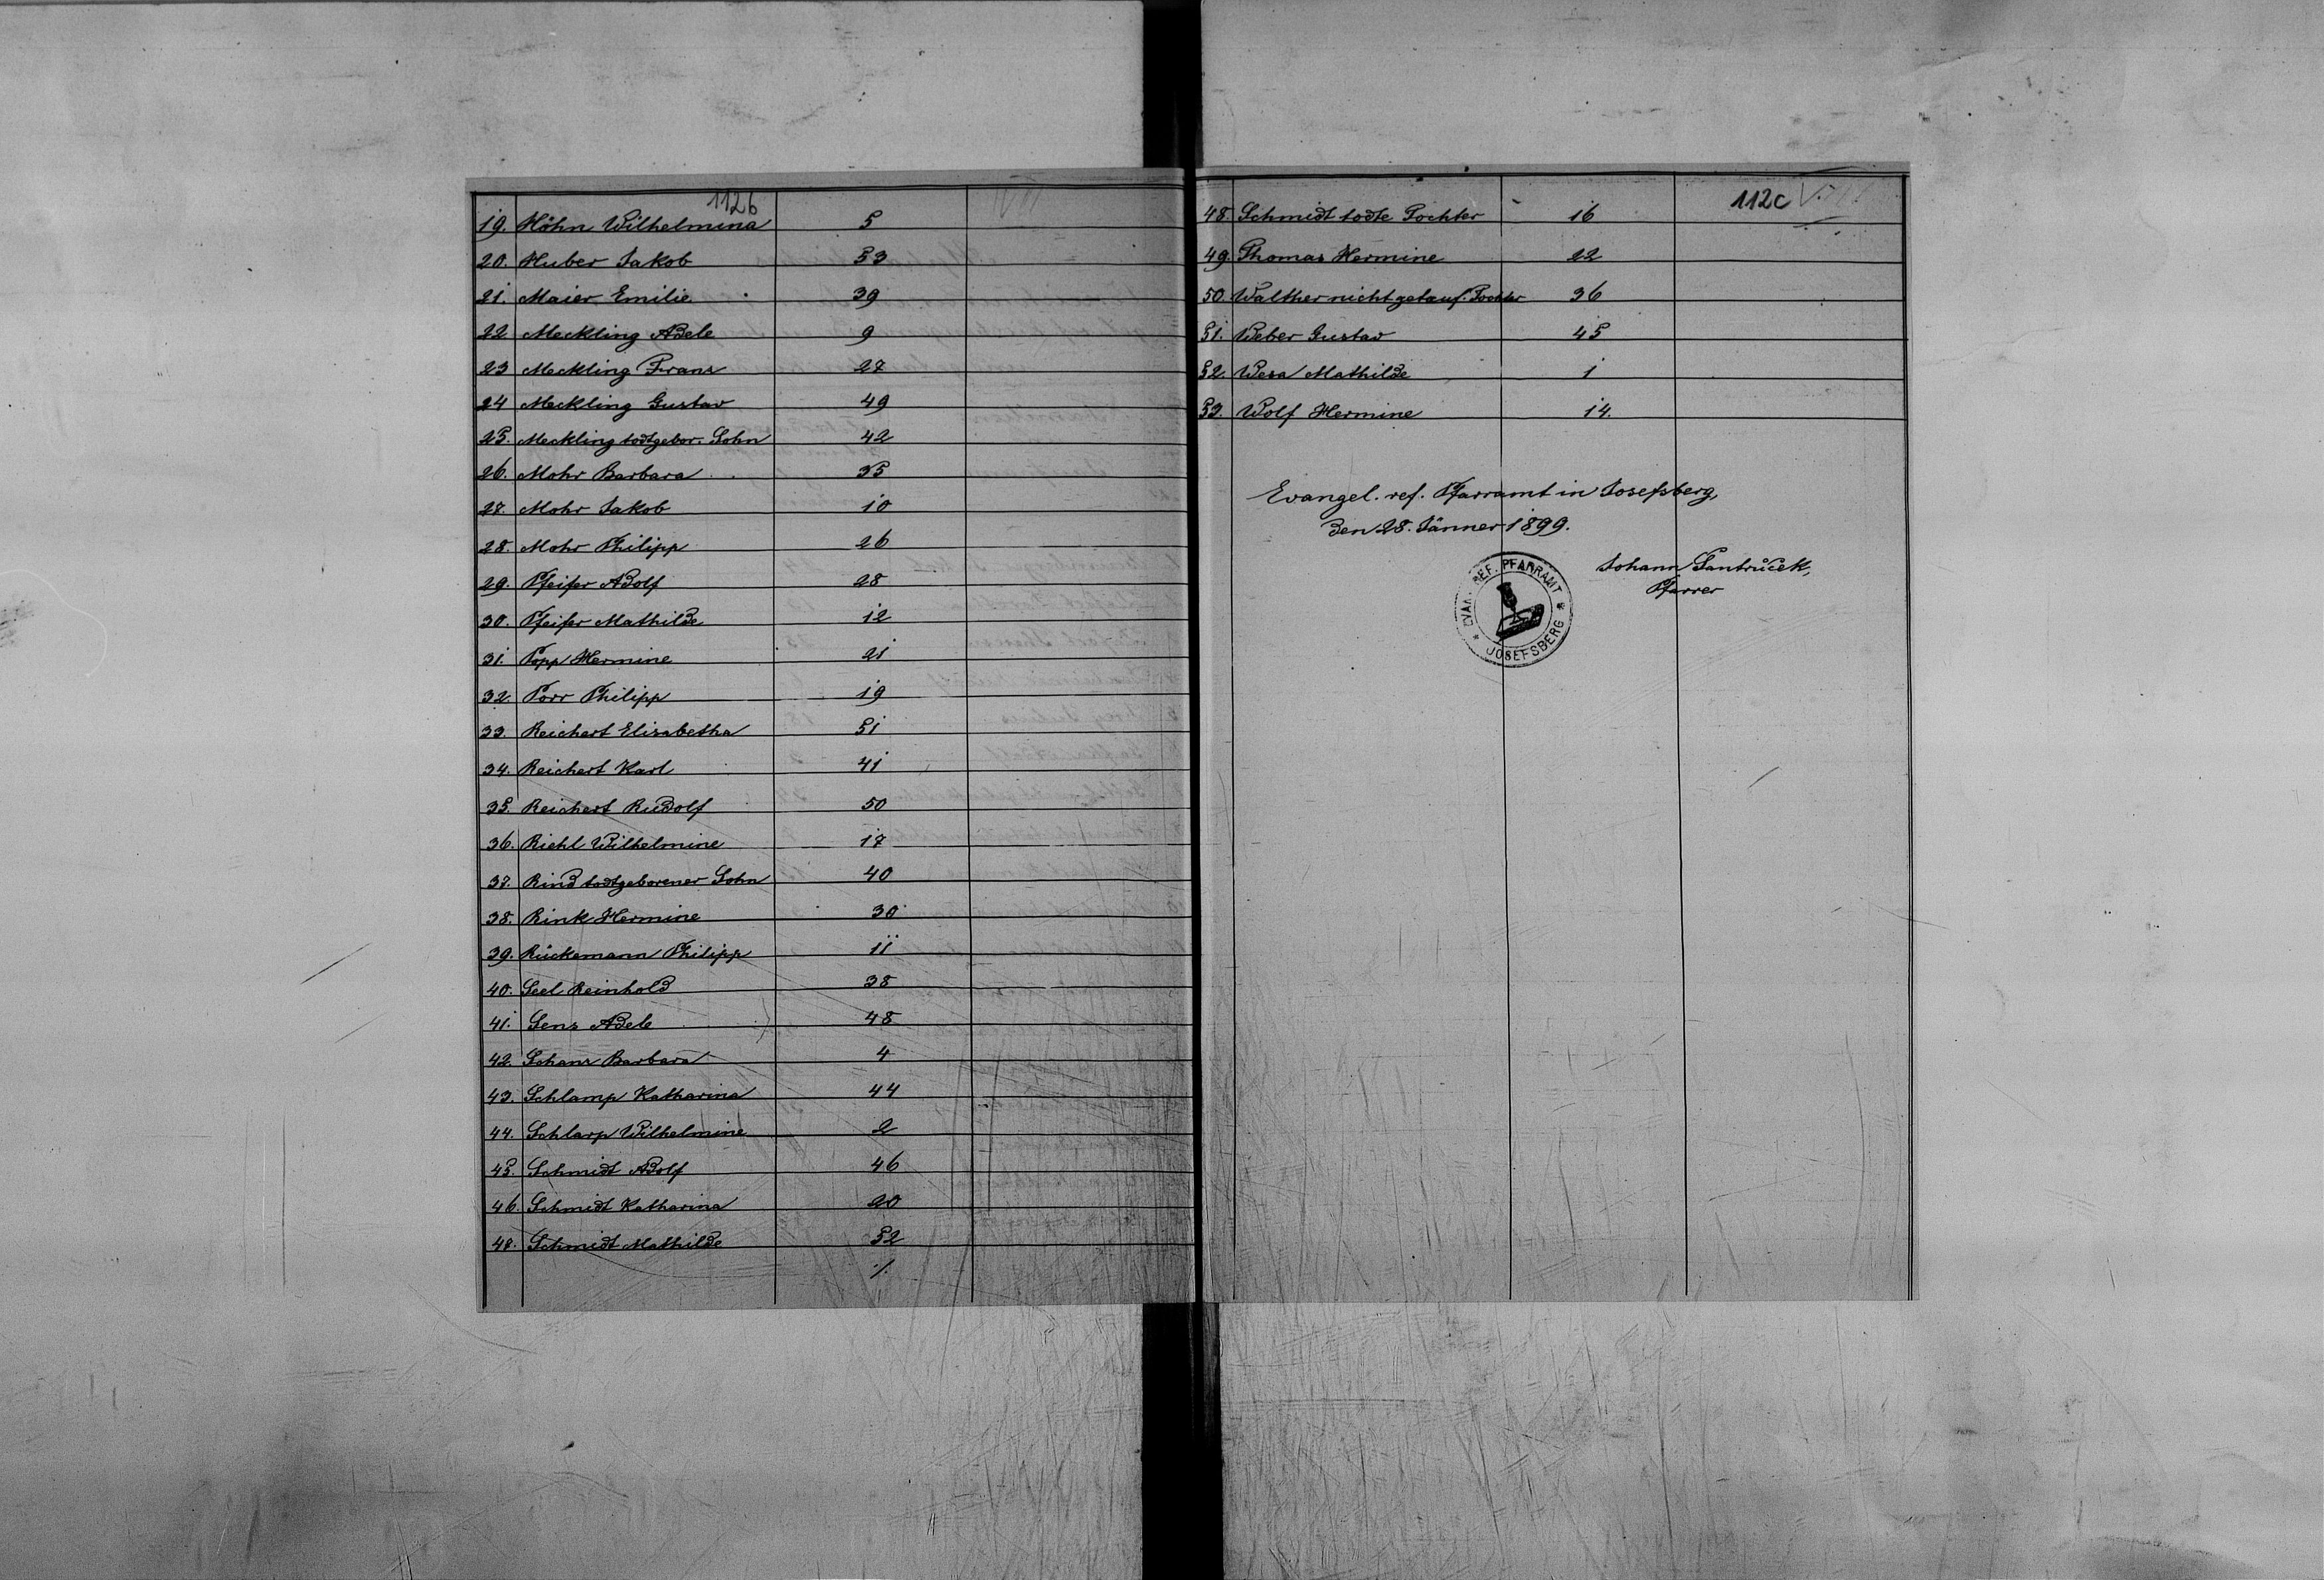 112b
VII
19. Höhn Wilhelmina 5
20. Huber Jakob 53
21. Maier Emilie 39
22 Meckling Adele 9
23 Meckling Franz 27
24 Meckling Gustav 49
25. Meckling todtgebor. Sohn 42
26. Mohr Barbara 35
27. Mohr Jakob 10
28. Mohr Philipp 26
29. Pfeifer Adolf 28
30. Pfeifer Mathilde 12
31. Popp Hermine 21
32. Porr Philipp 19
33. Reichert Elisabetha 51
34. Reichert Karl 41
35. Reichert Rudolf 50
36. Riehl Wilhelmine 17
37. Rind todtgeborener Sohn 40
38. Rink Hermine 30
39. Rückemann Philipp 11
40. Seel Reinhold 38
41. Senz Adele 48
42. Schanz Barbara 4
43. Schlamp Katharina 44
44. Schlarp Wilhelmine 2
45. Schmidt Adolf 46
46. Schmidt Katharina 20
48. Schmidt Mathilde 52
./.
112c VIII.
48. Schmidt todte Tochter 16
49. Thomas Hermine 22
50. Walther nicht getauf. Tochter 36
51. Weber Gustav 45
52. Weza Mathilde 1
53. Wolf Hermine 14.
Evangel. ref. Pfarramt in Josefsberg,
den 28. Jänner 1899.
Johann Jantruček,
Pfarrer
EVAN. REF. PFARRAMT * JOSEFSBERG *